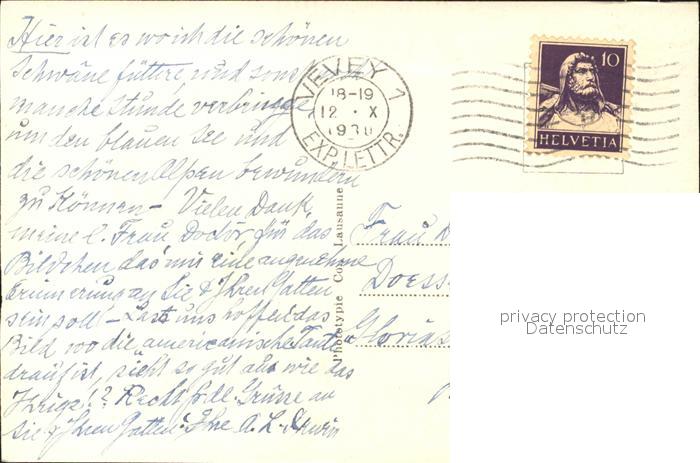 Hier ist es wo ich die schönen
Schwäne füttre, und sonst
manche Stunde verbringe
um den blauen See und
die schönen Alpen bewundern
zu können – Vielen Dank,
meine l. Frau Doctor für das
Bildchen das mir eine angenehme
Erinnerung an Sie & Ihren Gatten
sein soll – Lasst uns hoffen das
Bild wo die americanische Tante
drauf ist, sieht so gut aus wie das
Ihrige!? Recht frdl. Grüsse an
Sie & Ihren Gatten. Ihre A. L.
VEVEY 1
18-19
12 · X
1930
EXP. LETTR.
10
HELVETIA
Phototypie Co., Lausanne
Frau D
Doess
Glorias
privacy protection
Datenschutz